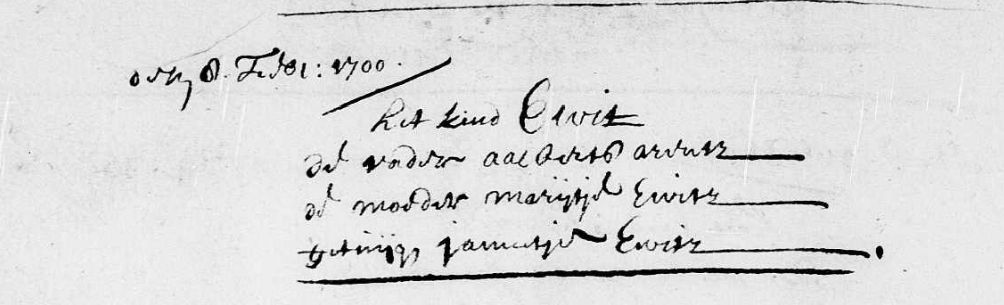 den 8. Febr: 1700.
het kind Ewit
de vader aalbert arentz
de moeder marijtje Ewitz
getuijg, jannetje Ewitz